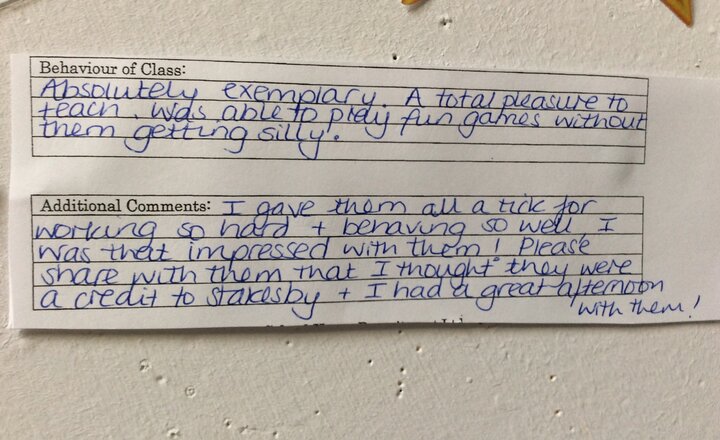 Behaviour of Class:
Absolutely exemplary. A total pleasure to
teach. Was able to play fun games without
them getting silly.
Additional Comments: I gave them all a tick for
working so hard + behaving so well, I
was that impressed with them! Please
share with them that I thought they were
a credit to Stakesby + I had a great afternoon
with them!